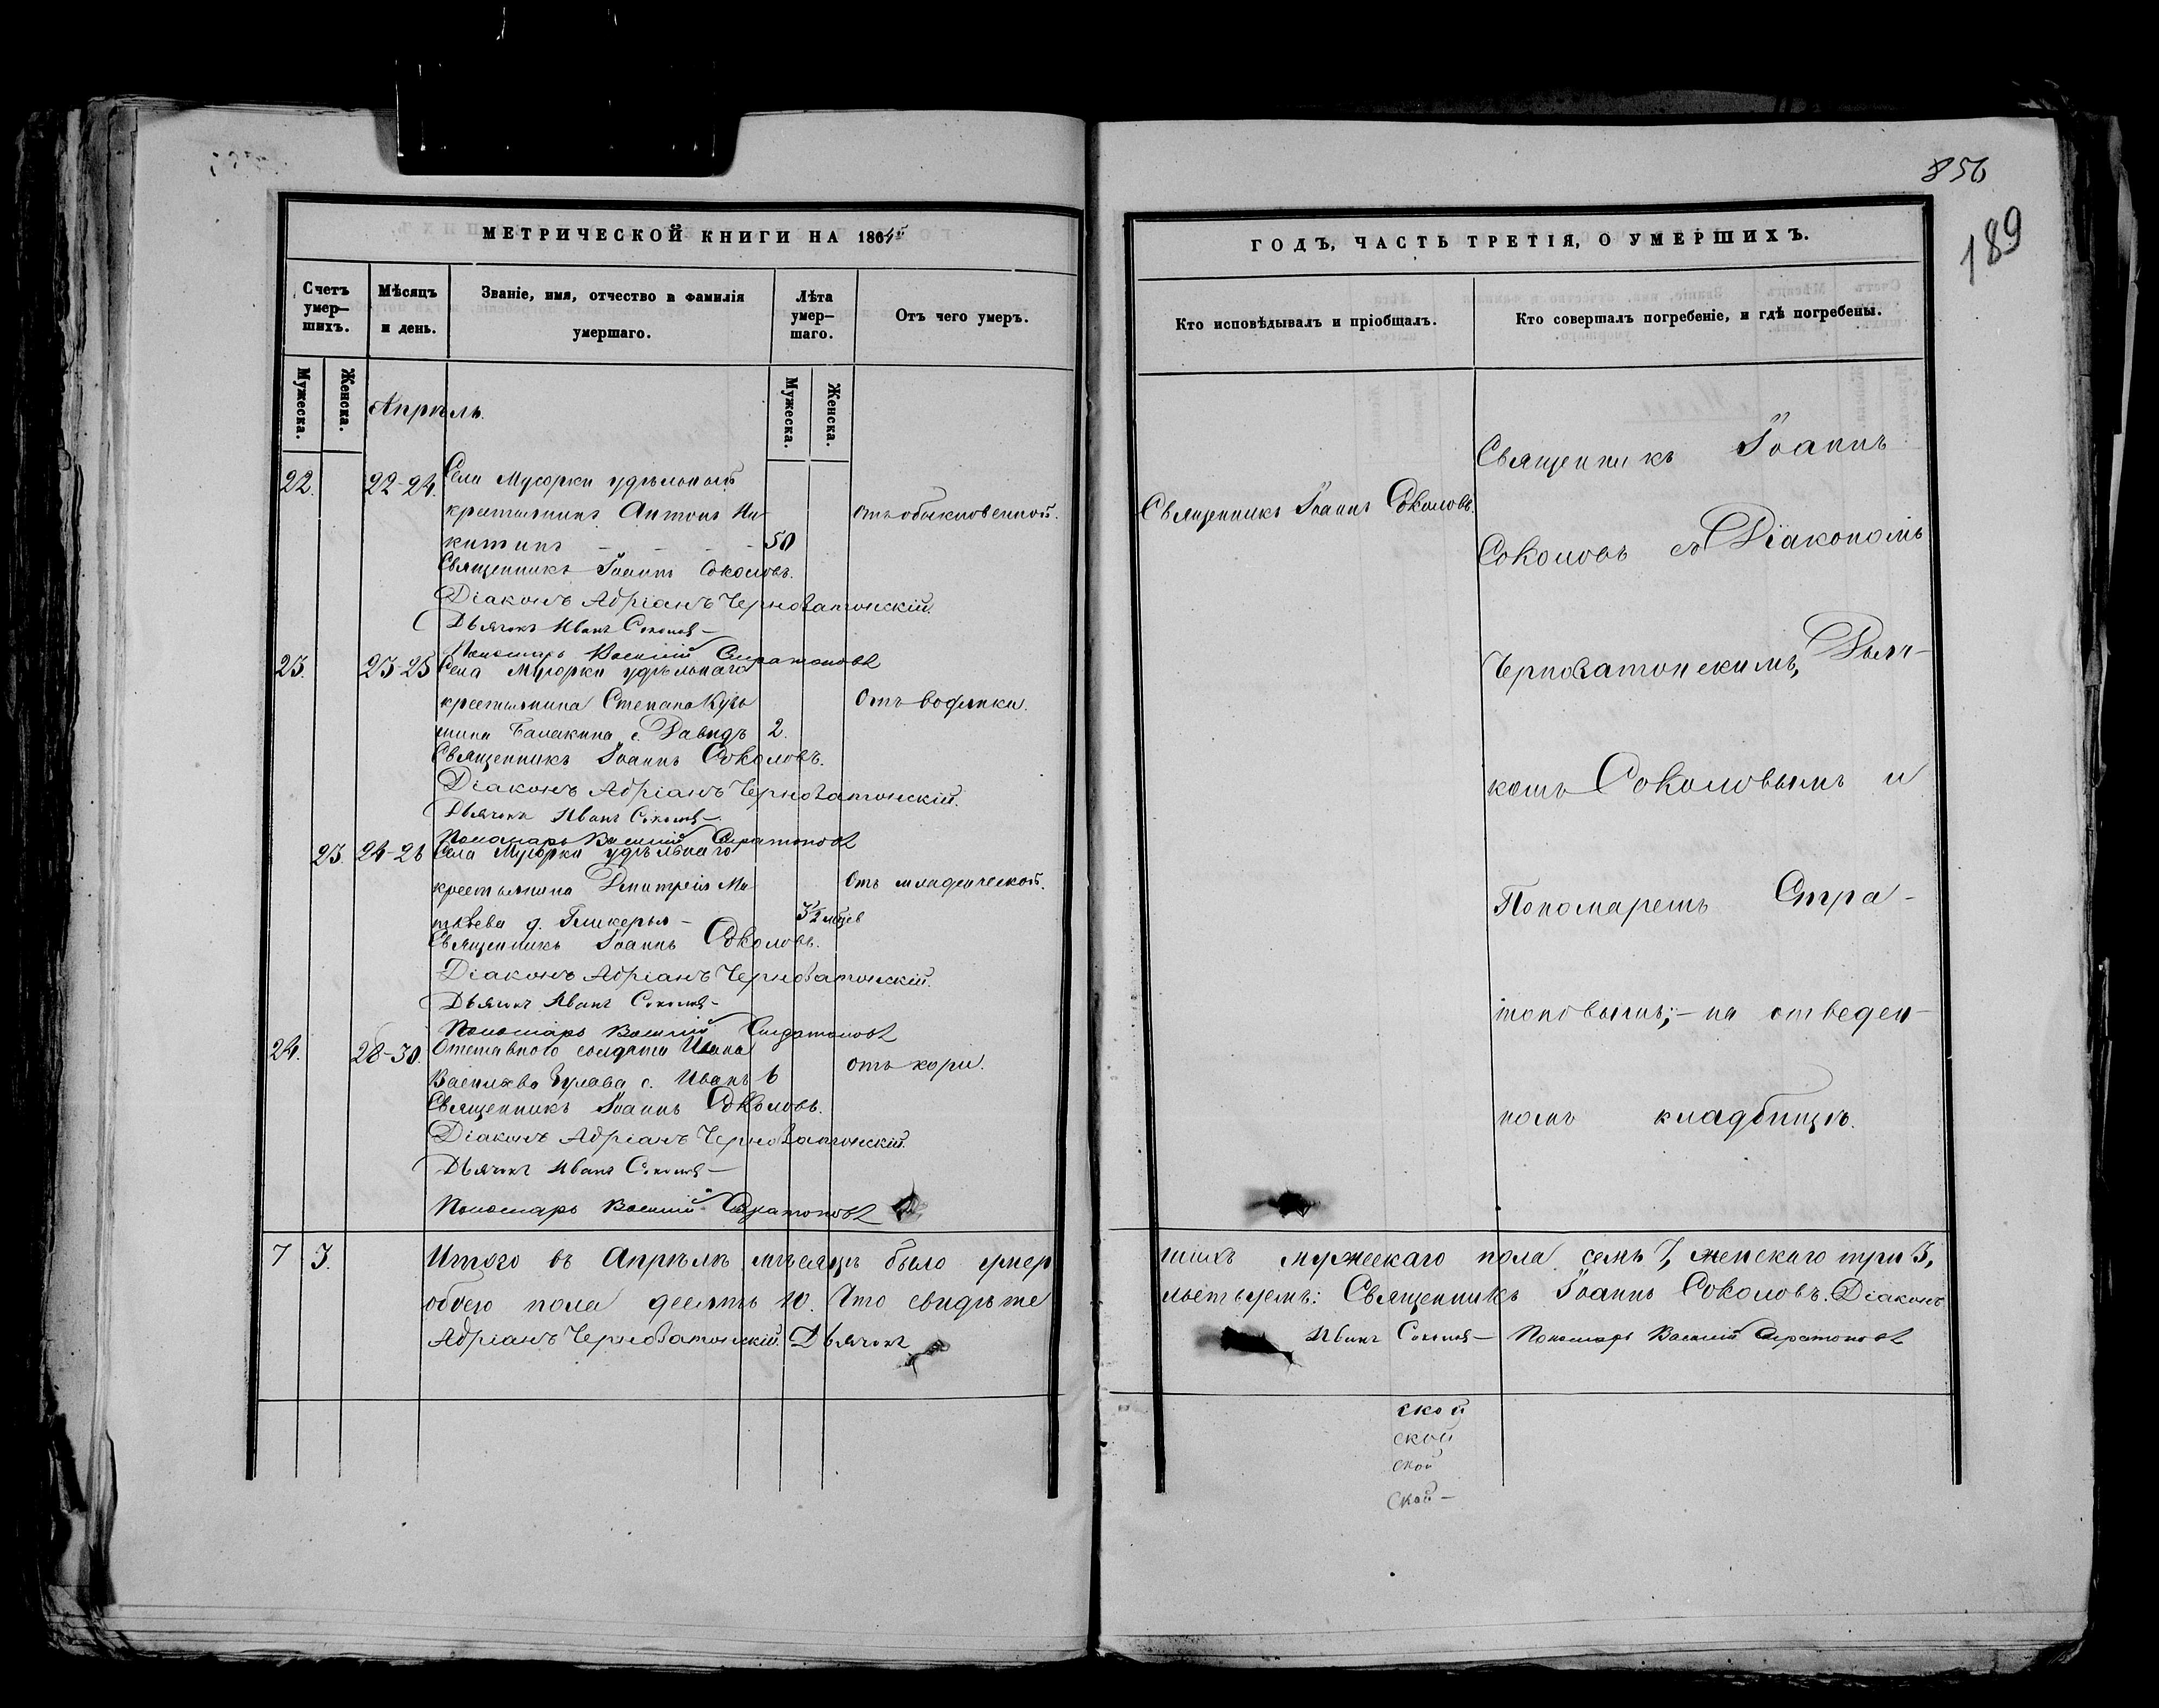 856
189
МЕТРИЧЕСКОЙ КНИГИ НА 1864й
ГОДЪ, ЧАСТЬ ТРЕТІЯ, О УМЕРШИХЪ.
Счетъ умер-шихъ.
Мѣсяцъ и день.
Званіе, имя, отчество и фамилія умершаго.
Лѣта умер-шаго.
Отъ чего умеръ.
Кто исповѣдывалъ и пріобщалъ.
Кто совершалъ погребеніе, и гдѣ погребены.
Мужеска.
Женска.
Мужеска.
Женска.
Апрѣль.
22. 22-24. Села Мусорки удѣльный
крестьянинъ Антонъ Ни-
китинъ - - - - 50
отъ обыкновенной.
Священникъ Іоаннъ Соколовъ.
Священникъ Іоаннъ Соколовъ.
Діаконъ Адріанъ Черноватонскій.
Дьячекъ Иванъ Соколов-
Пономарь Василій Стратоновъ
23. 23-25 Села Мусорки удѣльнаго
крестьянина Степана Кузь
мина Балакина с. Давидъ 2.
Отъ водянки.
Священникъ Іоаннъ Соколовъ.
Діаконъ Адріанъ Черноватонскій.
Дьячекъ Иванъ Соколов-
Пономарь Василій Стратоновъ
23. 24-26 Села Мусорки удѣльнаго
крестьянина Дмитрія Ма
твѣева д. Гликерья - 3½ мѣсев
Отъ младенческой.
Священникъ Іоаннъ Соколовъ.
Діаконъ Адріанъ Черноватонскій.
Дьячекъ Иванъ Соколов-
Пономарь Василій Стратоновъ
24. 28-30. Отставного солдата Ивана
Васильева с. Иванъ 6
отъ кори.
Священникъ Іоаннъ Соколовъ.
Діаконъ Адріанъ Черноватонскій.
Дьячекъ Иванъ Соколов-
Пономарь Василій Стратоновъ
Священникъ Іоаннъ
Соколовъ съ Діакономъ
Черноватонскимъ, Дьяч-
комъ Соколовымъ и
Пономаремъ Стра-
тоновымъ;- на отведен-
номъ кладбищѣ.
7 3. Итого въ Апрѣлѣ мѣсяцѣ было умер
шихъ мужескаго пола семь 7, женскаго три 3,
обоего пола десять 10. Что свидѣте
льствуемъ: Священникъ Іоаннъ Соколовъ. Діаконъ
Адріанъ Черноватонскій. Дьячекъ
Иванъ Соколов- Пономарь Василій Стратоновъ
ской
ской
ской
ской-